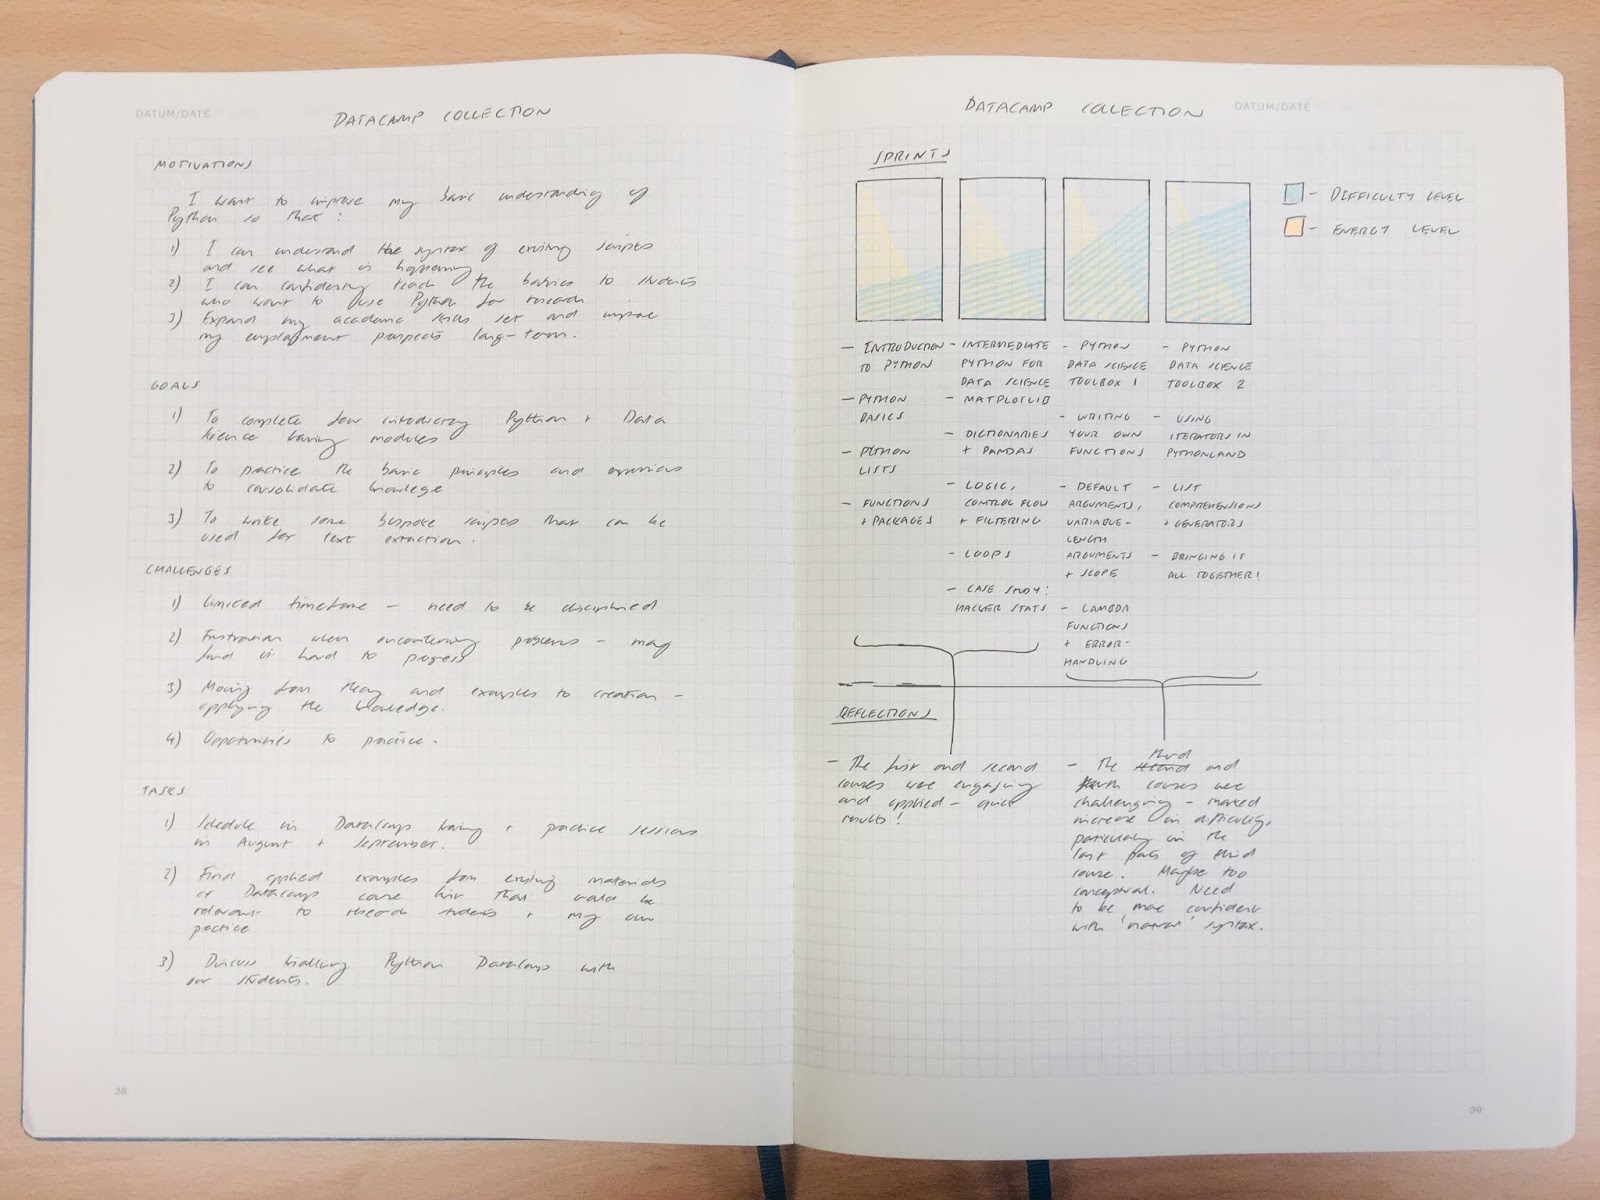 DATUM/DATE
DATACAMP COLLECTION
MOTIVATIONS
I want to improve my basic understanding of
Python so that:
1) I can understand the syntax of existing scripts
and see what is happening
2) I can confidently teach the basics to students
who want to use Python for research
3) Expand my academic skills set and improve
my employment prospects long-term.
GOALS
1) To complete four introductory Python + Data
Science training modules
2) To practice the basic principles and exercises
to consolidate knowledge
3) To write some bespoke scripts that can be
used for text extraction.
CHALLENGES
1) Limited timeframe - need to be disciplined
2) Frustration when encountering problems - may
find it hard to progress
3) Moving from theory and examples to creation -
applying the knowledge.
4) Opportunities to practice.
TASKS
1) Schedule in DataCamp training + practice sessions
in August + September.
2) Find applied examples from existing materials
or DataCamp course list that would be
relevant to research students + my own
practice
3) Discuss trialling Python DataCamp with
our students.
38
DATACAMP COLLECTION
DATUM/DATE
SPRINTS
- DIFFICULTY LEVEL
- ENERGY LEVEL
- INTRODUCTION
TO PYTHON
- PYTHON
BASICS
- PYTHON
LISTS
- FUNCTIONS
+ PACKAGES
- INTERMEDIATE
PYTHON FOR
DATA SCIENCE
- MATPLOTLIB
- DICTIONARIES
+ PANDAS
- LOGIC,
CONTROL FLOW
+ FILTERING
- LOOPS
- CASE STUDY:
HACKER STATS
- PYTHON
DATA SCIENCE
TOOLBOX 1
- WRITING
YOUR OWN
FUNCTIONS
- DEFAULT
ARGUMENTS,
VARIABLE-
LENGTH
ARGUMENTS
+ SCOPE
- LAMBDA
FUNCTIONS
+ ERROR-
HANDLING
- PYTHON
DATA SCIENCE
TOOLBOX 2
- USING
ITERATORS IN
PYTHONLAND
- LIST
COMPREHENSIONS
+ GENERATORS
- BRINGING IT
ALL TOGETHER!
REFLECTIONS
- The first and second
courses were engaging
and applied - quick
results!
- The third and
fourth courses were
challenging - marked
increase in difficulty,
particularly in the
last parts of third
course. Maybe too
conceptual. Need
to be more confident
with 'normal' syntax.
39